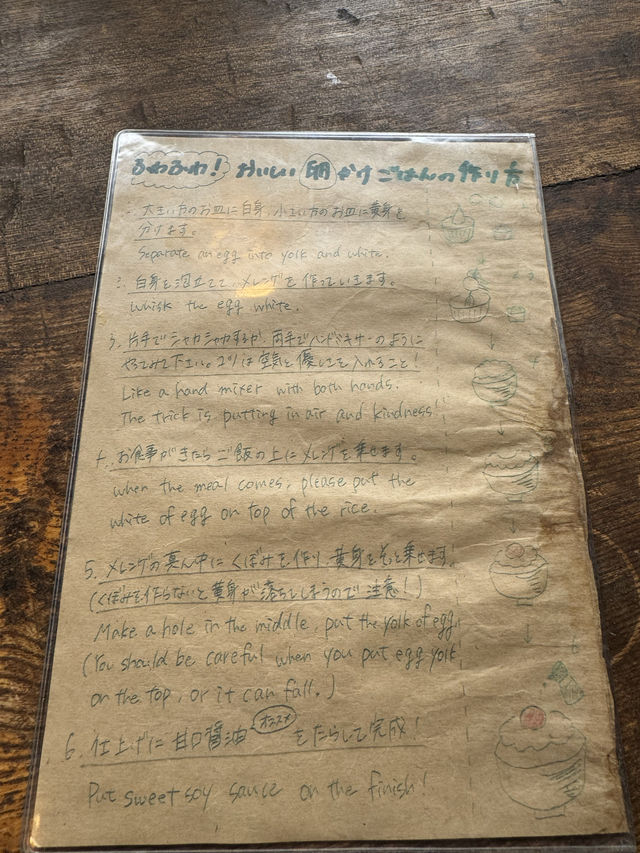 ふわふわ！ おいしい 卵かけごはんの作り方
1. 大きい方のお皿に白身、小さい方のお皿に黄身を
分けます。
Separate an egg into yolk and white.
2. 白身を泡立てて、メレンゲを作っていきます。
Whisk the egg white.
3. 片手でシャカシャカするか、両手でハンドミキサーのように
やってみて下さい。コツは空気と優しさを入れること！
Like a hand mixer with both hands.
The trick is putting in air and kindness!
4. お食事がきたらご飯の上にメレンゲを乗せます。
when the meal comes, please put the
white of egg on top of the rice.
5. メレンゲの真ん中にくぼみを作り、黄身をそっと乗せます。
(くぼみを作らないと黄身が落ちてしまうので注意！)
Make a hole in the middle, put the yolk of egg.
(You should be careful when you put egg yolk
on the top, or it can fall.)
6. 仕上げに甘口醤油 オススメ をたらして完成！
Put sweet soy sauce on the finish!